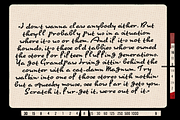 I don't wanna slay anybody either. But
they'll probably put us in a situation
where it's us or them. And if it's not the
hounds, it's these old tabbies who've owned
the store for fifteen fluffing generations
that got Grandpaw Irving sittin' behind the
counter with a cat-damn Magnum. Try
walkin' into one of those stores with nothin'
but a squeaky mouse, see how far it gets you.
Scratch it. Fur-get it, we're out of it.